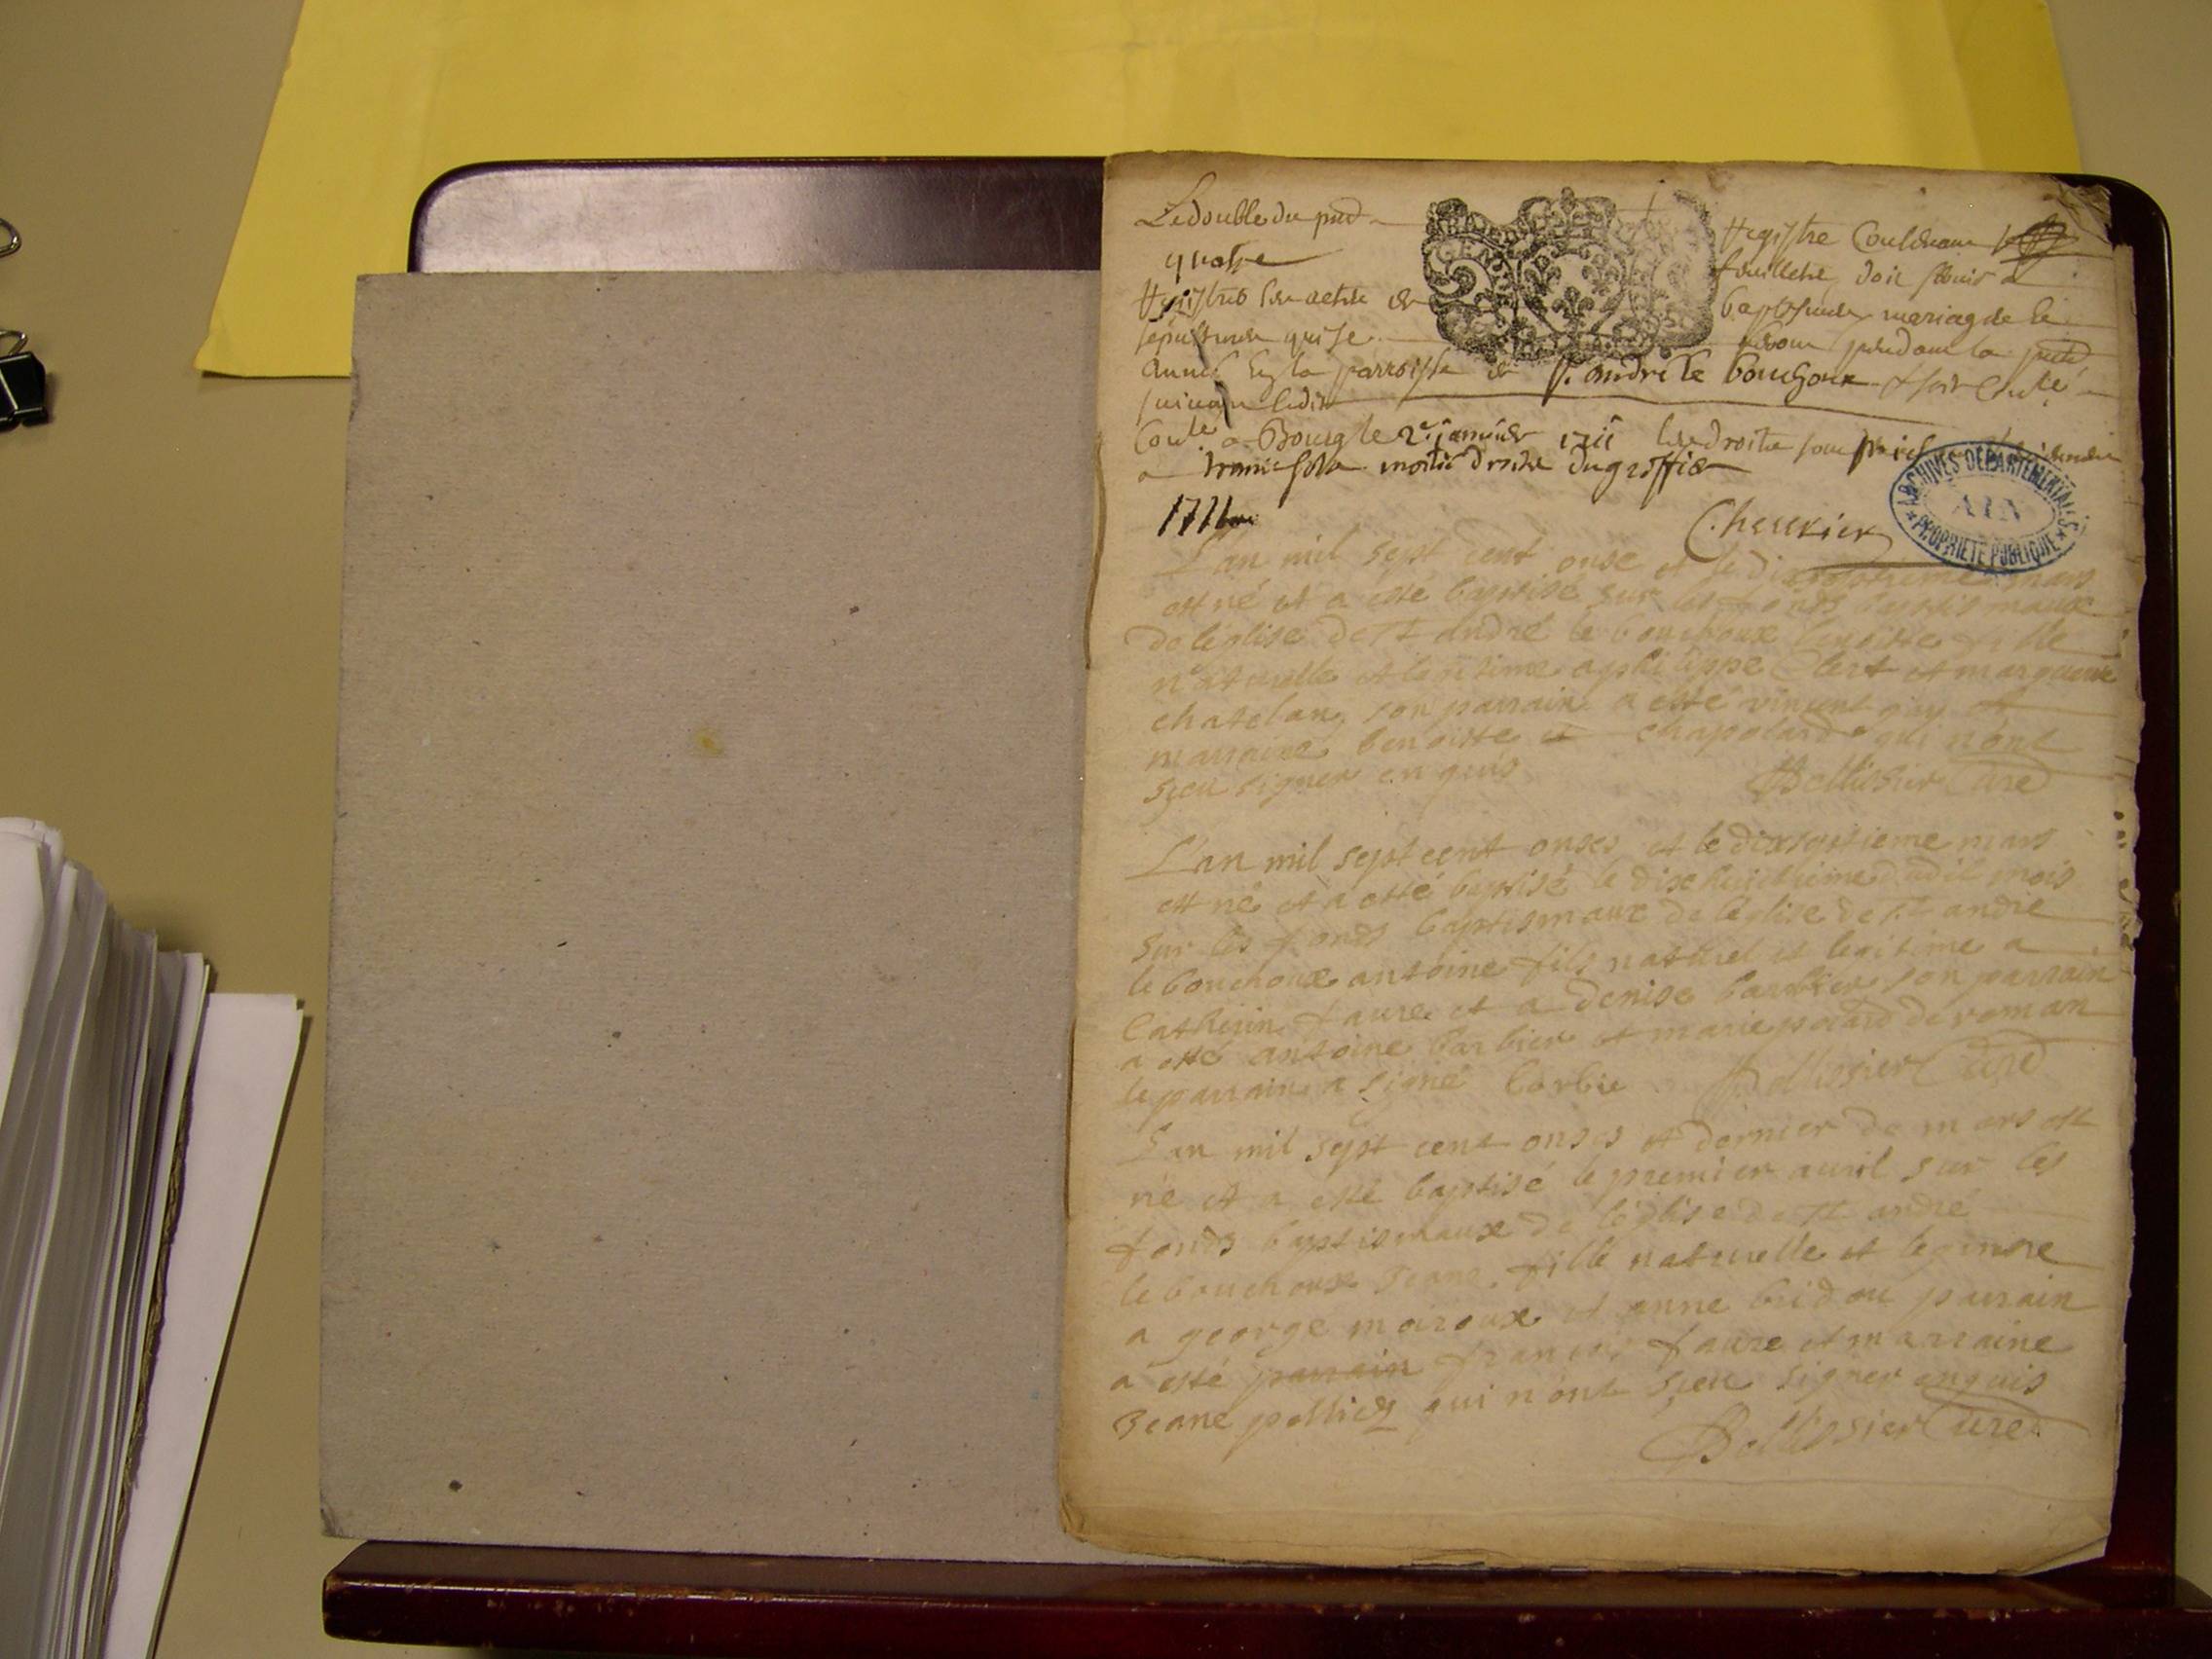 Le double du pnt
Registre Contenant
quatre
feuillets doit servir a
Registrer les actes de
baptesmes mariages &
sepultures qui se
feront pendant la pnte
année En la parroisse de St. andré le bouchoux
suivant ledit
Cotté a Bourg le 2e. janvier 1711 les droits
moitié droits du greffier
1711
Cheurier
ARCHIVES DEPARTEMENTALES
AIN
PROPRIETE PUBLIQUE
L'an mil sept cent onse et le mars
est né et a esté baptisé sur les fonds baptismaux
de léglise de St andré le bouchoux benoiste fille
naturelle et legitime a philippe Clert et marguerite
chatelan, son parrain a esté vincent guy et
marraine benoiste chapolard qui nont
sçeu signer enquis
Bellissier Curé
L'an mil sept cent onses et le dixseptieme mars
est né et a esté baptisé le dixhuictieme dudit mois
sur les fonds baptismaux de léglise de St andré
le bouchoux antoine fils naturel et legitime a
Catherin faure et a denise barbier son parrain
a esté antoine barbier et marie pocard de roman
le parrain a signé barbie Bellissier Curé
L'an mil sept cent onses et dernier de mars est
né et a esté baptisé le premier avril sur les
fonds baptismaux de léglise de St andré
le bouchoux Jeane fille naturelle et legitime
a george moiroux et anne bridou parrain
a esté parrain francois faure et marraine
Jeane qui n'ont sçeu signer enquis
Bellissier Curé